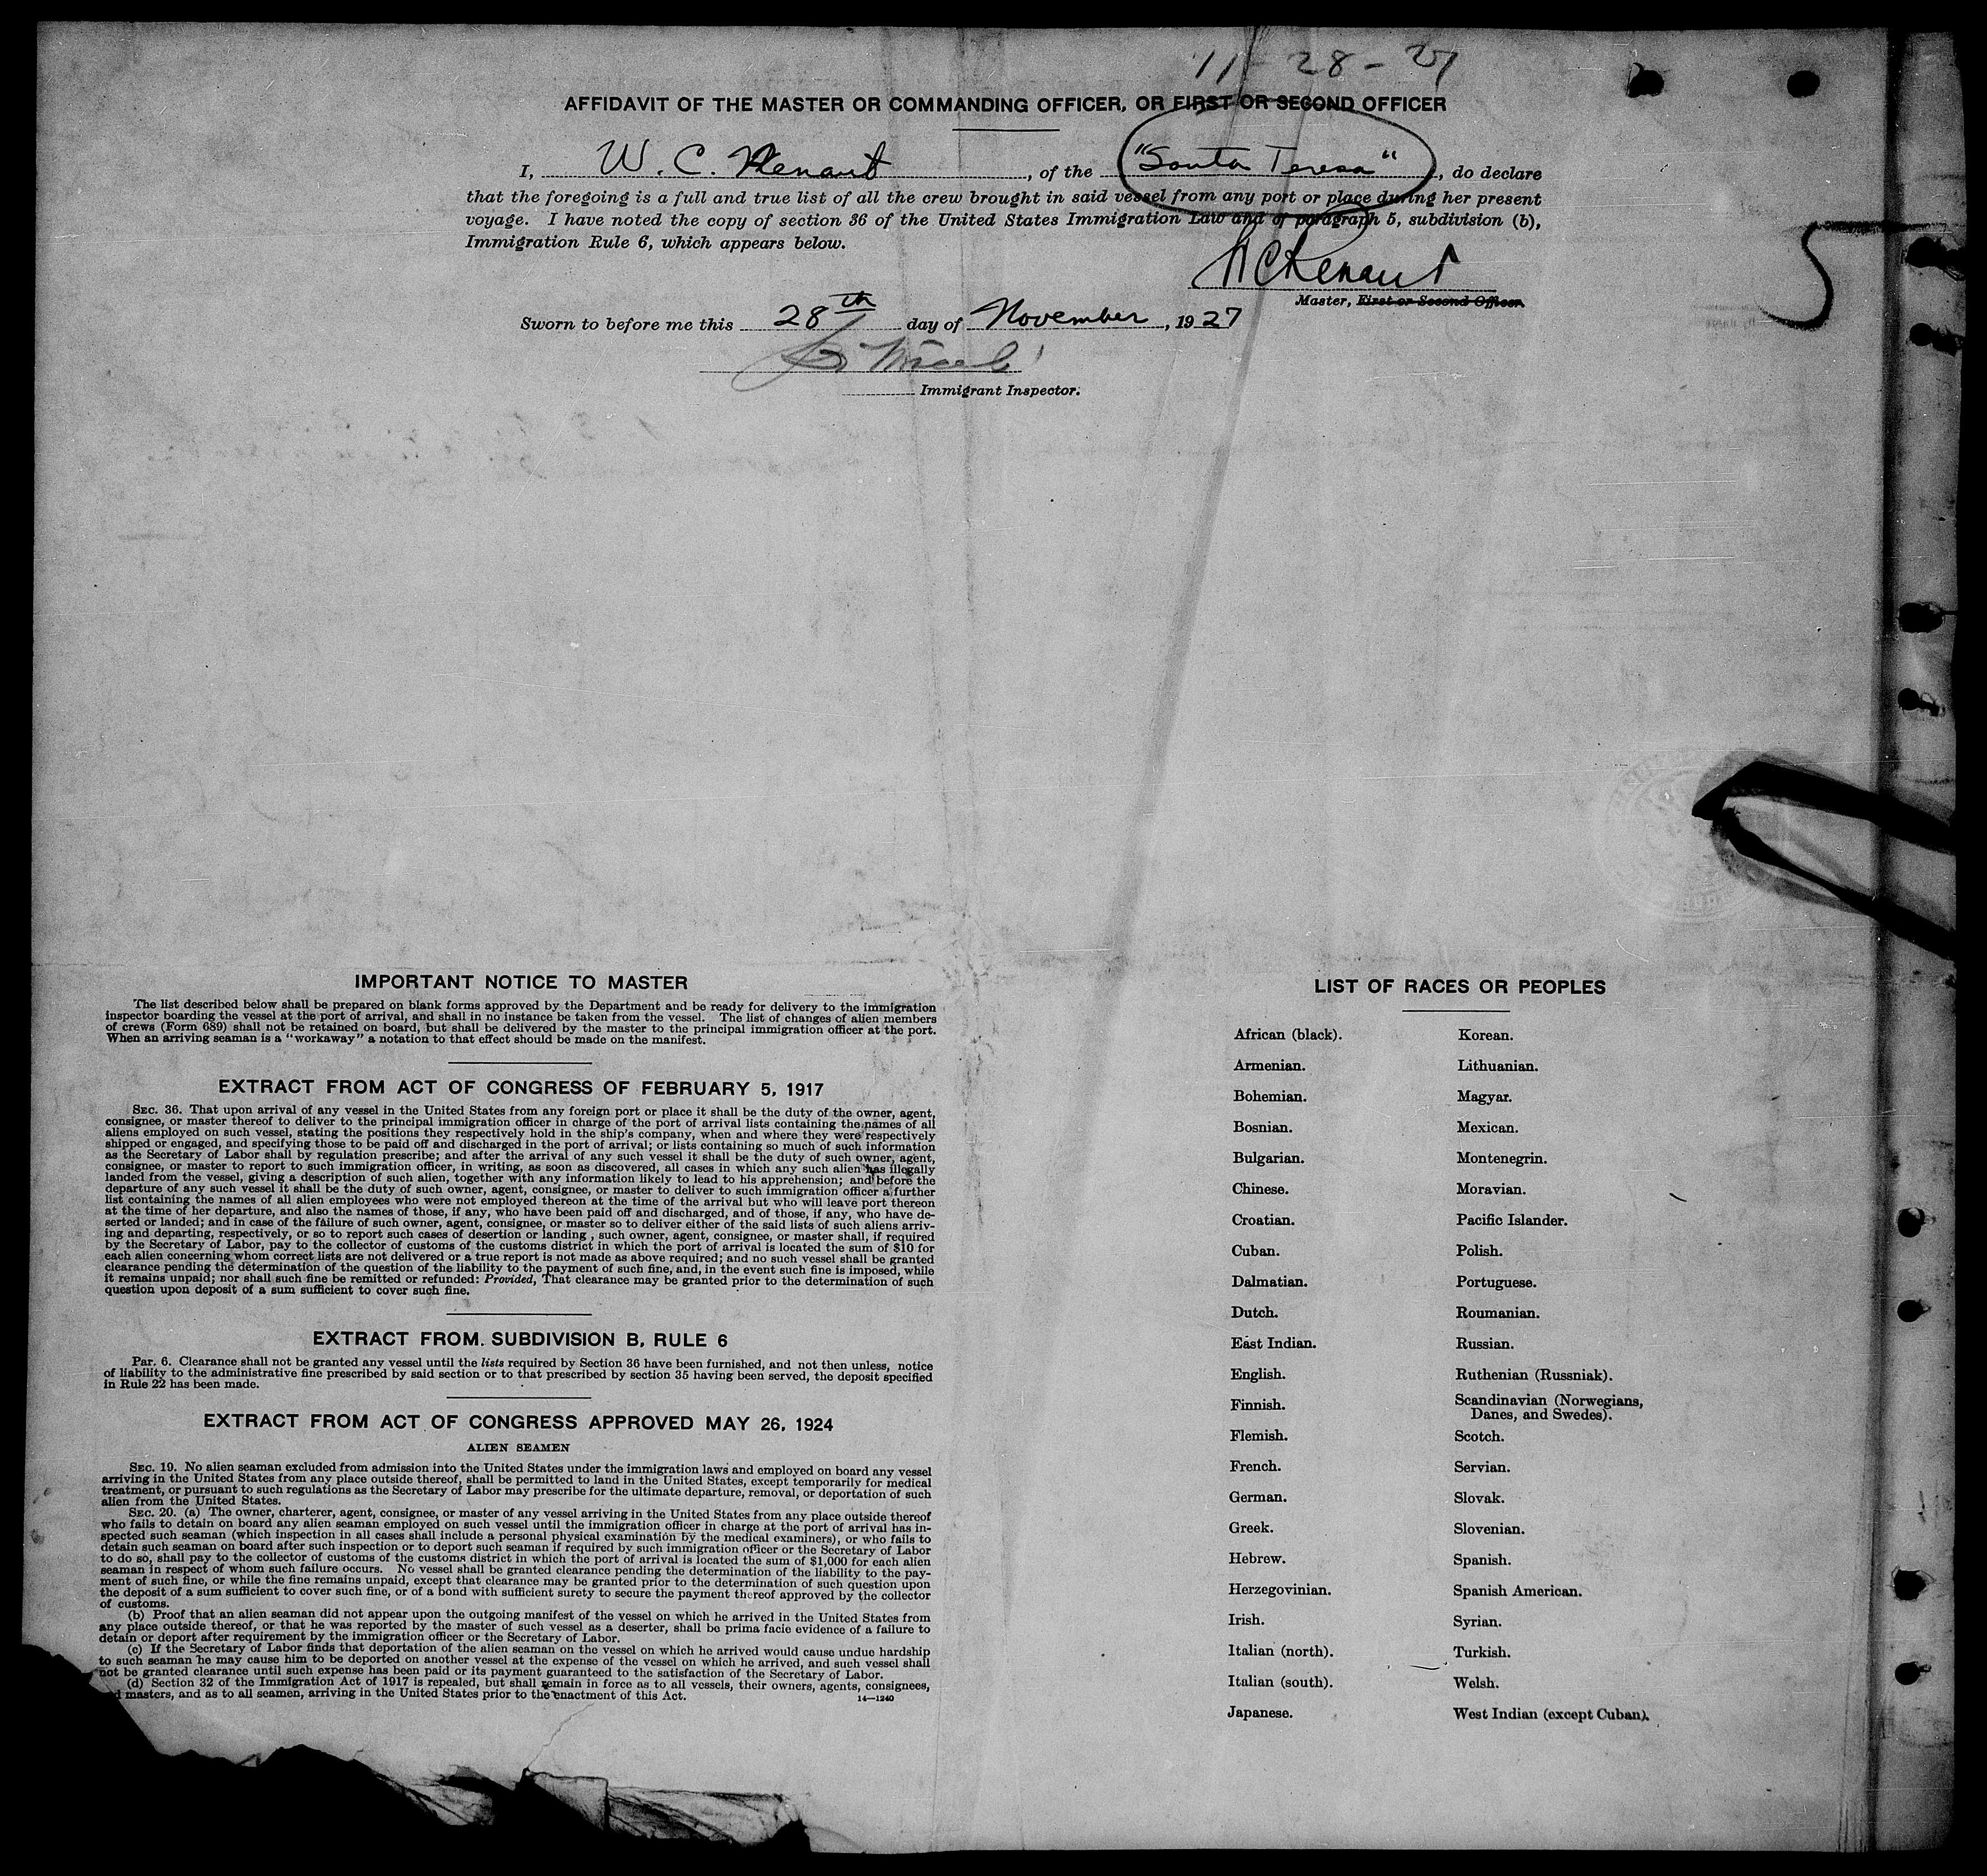 11-28-27
AFFIDAVIT OF THE MASTER OR COMMANDING OFFICER, OR FIRST OR SECOND OFFICER
I, W. C. Renaut, of the "Santa Teresa", do declare
that the foregoing is a full and true list of all the crew brought in said vessel from any port or place during her present
voyage. I have noted the copy of section 36 of the United States Immigration Law and of paragraph 5, subdivision (b),
Immigration Rule 6, which appears below.
WCRenaut
Master, First or Second Officer.
5
Sworn to before me this 28th day of November, 1927
Immigrant Inspector.
IMPORTANT NOTICE TO MASTER
The list described below shall be prepared on blank forms approved by the Department and be ready for delivery to the immigration
inspector boarding the vessel at the port of arrival, and shall in no instance be taken from the vessel. The list of changes of alien members
of crews (Form 689) shall not be retained on board, but shall be delivered by the master to the principal immigration officer at the port.
When an arriving seaman is a "workaway" a notation to that effect should be made on the manifest.
EXTRACT FROM ACT OF CONGRESS OF FEBRUARY 5, 1917
SEC. 36. That upon arrival of any vessel in the United States from any foreign port or place it shall be the duty of the owner, agent,
consignee, or master thereof to deliver to the principal immigration officer in charge of the port of arrival lists containing the names of all
aliens employed on such vessel, stating the positions they respectively hold in the ship's company, when and where they were respectively
shipped or engaged, and specifying those to be paid off and discharged in the port of arrival; or lists containing so much of such information
as the Secretary of Labor shall by regulation prescribe; and after the arrival of any such vessel it shall be the duty of such owner, agent,
consignee, or master to report to such immigration officer, in writing, as soon as discovered, all cases in which any such alien has illegally
landed from the vessel, giving a description of such alien, together with any information likely to lead to his apprehension; and before the
departure of any such vessel it shall be the duty of such owner, agent, consignee, or master to deliver to such immigration officer a further
list containing the names of all alien employees who were not employed thereon at the time of the arrival but who will leave port thereon
at the time of her departure, and also the names of those, if any, who have been paid off and discharged, and of those, if any, who have de-
serted or landed; and in case of the failure of such owner, agent, consignee, or master so to deliver either of the said lists of such aliens arriv-
ing and departing, respectively, or so to report such cases of desertion or landing , such owner, agent, consignee, or master shall, if required
by the Secretary of Labor, pay to the collector of customs of the customs district in which the port of arrival is located the sum of $10 for
each alien concerning whom correct lists are not delivered or a true report is not made as above required; and no such vessel shall be granted
clearance pending the determination of the question of the liability to the payment of such fine, and, in the event such fine is imposed, while
it remains unpaid; nor shall such fine be remitted or refunded: Provided, That clearance may be granted prior to the determination of such
question upon deposit of a sum sufficient to cover such fine.
EXTRACT FROM. SUBDIVISION B, RULE 6
Par. 6. Clearance shall not be granted any vessel until the lists required by Section 36 have been furnished, and not then unless, notice
of liability to the administrative fine prescribed by said section or to that prescribed by section 35 having been served, the deposit specified
in Rule 22 has been made.
EXTRACT FROM ACT OF CONGRESS APPROVED MAY 26, 1924
ALIEN SEAMEN
SEC. 19. No alien seaman excluded from admission into the United States under the immigration laws and employed on board any vessel
arriving in the United States from any place outside thereof, shall be permitted to land in the United States, except temporarily for medical
treatment, or pursuant to such regulations as the Secretary of Labor may prescribe for the ultimate departure, removal, or deportation of such
alien from the United States.
SEC. 20. (a) The owner, charterer, agent, consignee, or master of any vessel arriving in the United States from any place outside thereof
who fails to detain on board any alien seaman employed on such vessel until the immigration officer in charge at the port of arrival has in-
spected such seaman (which inspection in all cases shall include a personal physical examination by the medical examiners), or who fails to
detain such seaman on board after such inspection or to deport such seaman if required by such immigration officer or the Secretary of Labor
to do so, shall pay to the collector of customs of the customs district in which the port of arrival is located the sum of $1,000 for each alien
seaman in respect of whom such failure occurs. No vessel shall be granted clearance pending the determination of the liability to the pay-
ment of such fine, or while the fine remains unpaid, except that clearance may be granted prior to the determination of such question upon
the deposit of a sum sufficient to cover such fine, or of a bond with sufficient surety to secure the payment thereof approved by the collector
of customs.
(b) Proof that an alien seaman did not appear upon the outgoing manifest of the vessel on which he arrived in the United States from
any place outside thereof, or that he was reported by the master of such vessel as a deserter, shall be prima facie evidence of a failure to
detain or deport after requirement by the immigration officer or the Secretary of Labor.
(c) If the Secretary of Labor finds that deportation of the alien seaman on the vessel on which he arrived would cause undue hardship
to such seaman he may cause him to be deported on another vessel at the expense of the vessel on which he arrived, and such vessel shall
not be granted clearance until such expense has been paid or its payment guaranteed to the satisfaction of the Secretary of Labor.
(d) Section 32 of the Immigration Act of 1917 is repealed, but shall remain in force as to all vessels, their owners, agents, consignees,
d masters, and as to all seamen, arriving in the United States prior to the enactment of this Act.
14—1240
LIST OF RACES OR PEOPLES
African (black).
Armenian.
Bohemian.
Bosnian.
Bulgarian.
Chinese.
Croatian.
Cuban.
Dalmatian.
Dutch.
East Indian.
English.
Finnish.
Flemish.
French.
German.
Greek.
Hebrew.
Herzegovinian.
Irish.
Italian (north).
Italian (south).
Japanese.
Korean.
Lithuanian.
Magyar.
Mexican.
Montenegrin.
Moravian.
Pacific Islander.
Polish.
Portuguese.
Roumanian.
Russian.
Ruthenian (Russniak).
Scandinavian (Norwegians,
Danes, and Swedes).
Scotch.
Servian.
Slovak.
Slovenian.
Spanish.
Spanish American.
Syrian.
Turkish.
Welsh.
West Indian (except Cuban).